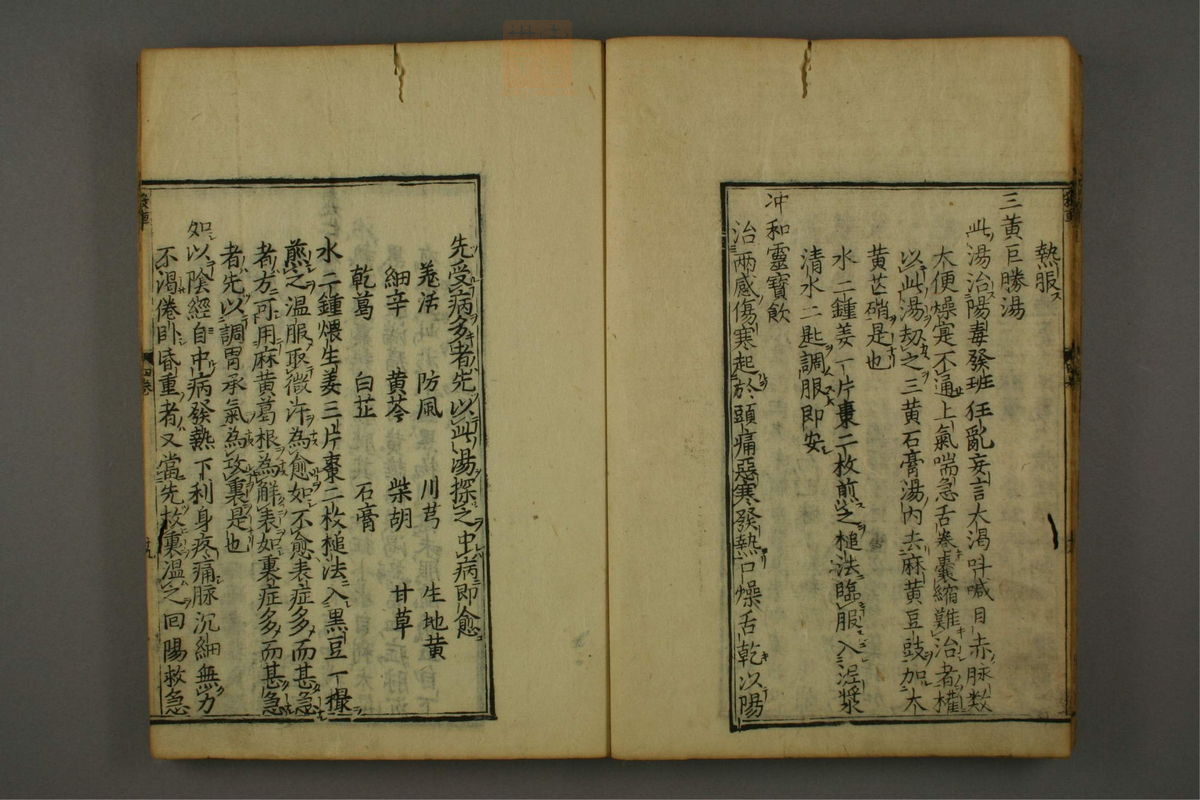 熱服ス
三黄巨勝湯
此湯治陽毒發班狂亂妄言大渴呌喊目赤脉数
大便燥寔不通上氣喘急舌巻囊縮難治者權
以此湯刼之三黄石膏湯内去麻黄豆豉加大
黄芒硝是也
水二鍾姜一片棗二枚煎之槌法臨服入泥漿
清水二匙調服即安
冲和靈寶飲
治兩感傷寒起於頭痛惡寒發熱口燥舌乾以陽
先受病多者先以此湯探之中病即愈
羗活 防風 川芎 生地黄
細辛 黄芩 柴胡 甘草
乾葛 白芷 石膏
水二鍾煨生姜三片棗二枚槌法入黒豆一撮
煎之温服取微汗為愈如不愈表症多而甚急
者方可用麻黄葛根為解表如裏症多而甚急
者先以調胃承氣為攻裏是也
如以陰經自中病發熱下利身疼痛脉沉細無力
不渴倦卧昏重者又當先救裏温之回陽救急
四巻